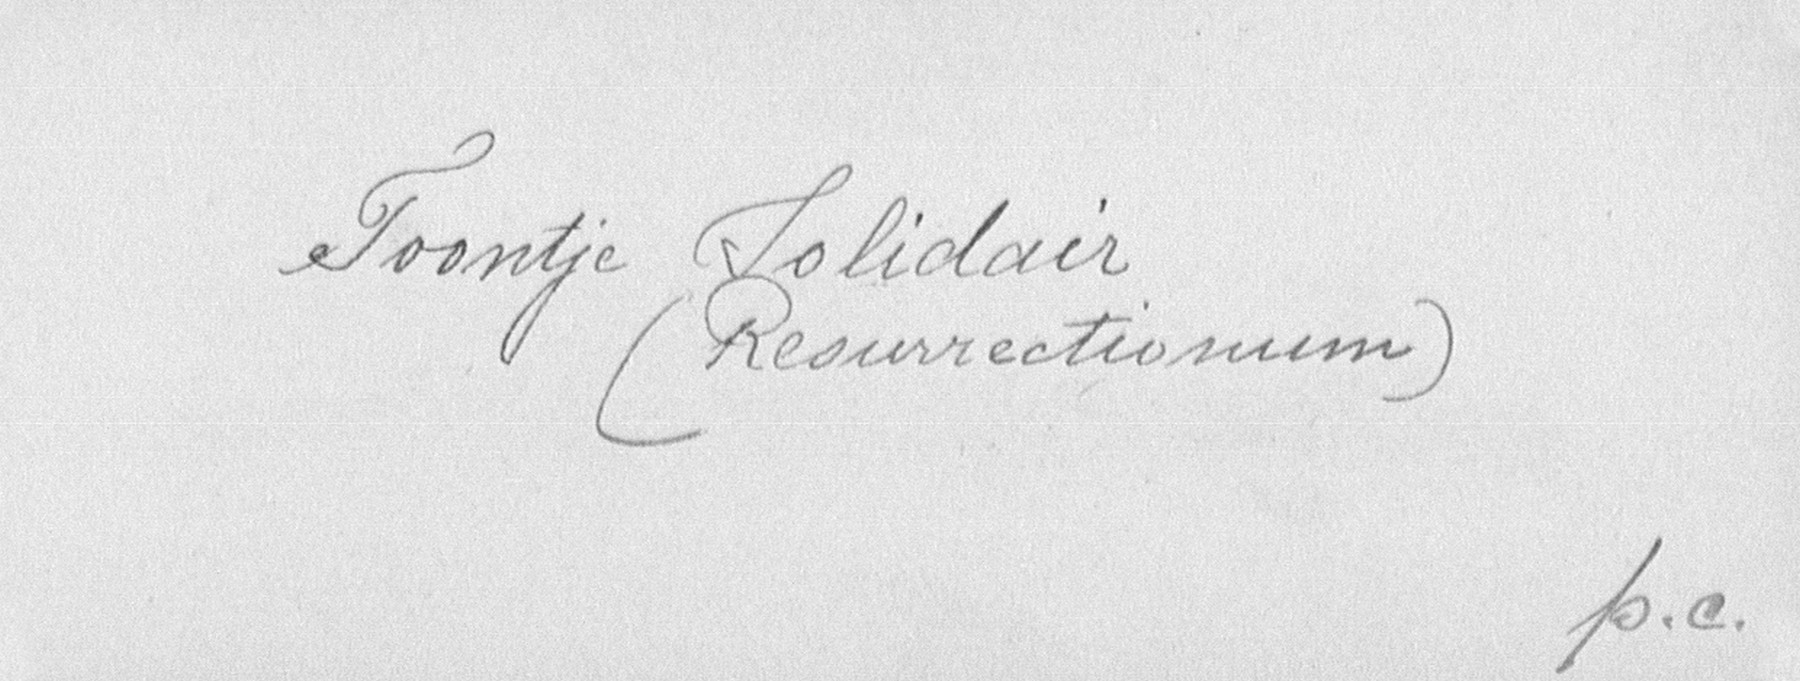 Toontje Solidair
(Resurrectionum)
p.c.